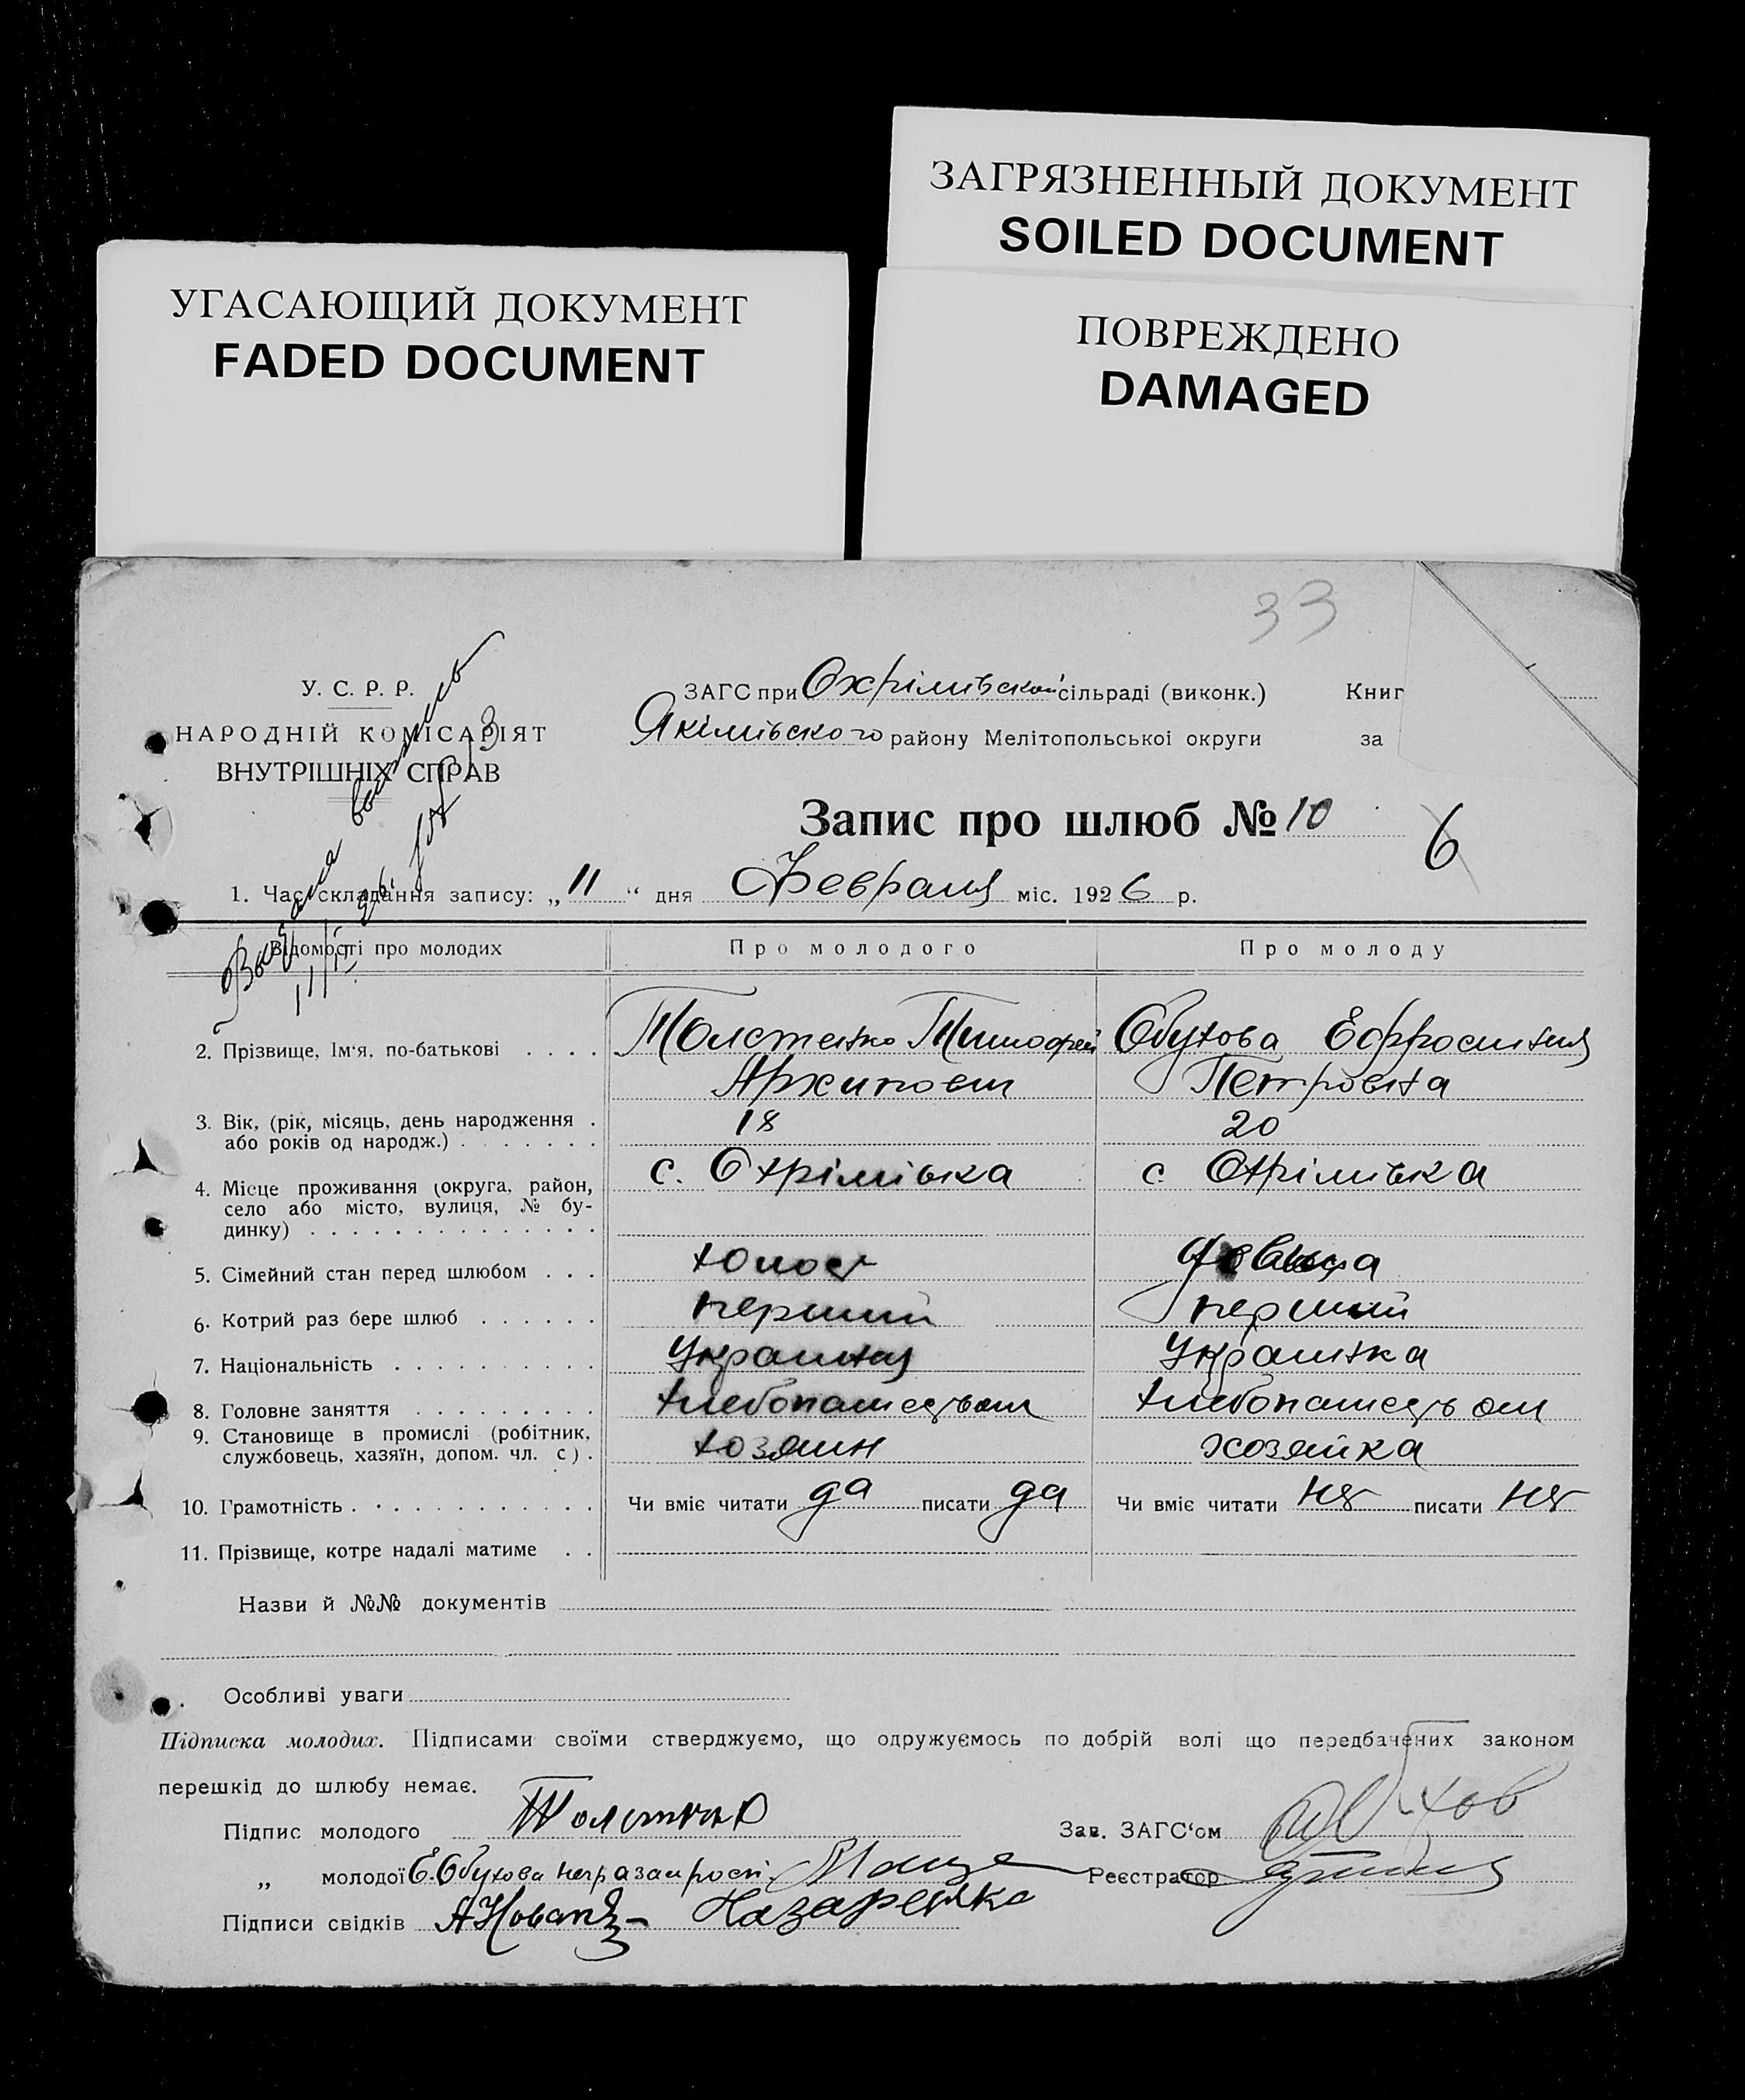 ЗАГРЯЗНЕННЫЙ ДОКУМЕНТ
SOILED DOCUMENT
УГАСАЮЩИЙ ДОКУМЕНТ
FADED DOCUMENT
ПОВРЕЖДЕНО
DAMAGED
33
У. С. Р. Р.
НАРОДНІЙ КОМІСАРІЯТ
ВНУТРІШНІХ СПРАВ
ЗАГС при Охрімівской сільраді (виконк.)
Якімівского району Мелітопольської округи
Книг
за
Запис про шлюб № 10
6
1. Час складання запису: „ 11 “ дня Февраля міс. 1926 р.
Відомості про молодих Про молодого Про молоду
2. Прізвище, Ім‘я, по-батькові . . . . Толстенко Тимофей Обухова Ефросиния
Архипович Петровна
3. Вік, (рік, місяць, день народження . 18 20
або років од народж.) . . . . . . .
4. Місце проживання (округа, район, с. Охрімівка с Охрімівка
село або місто, вулиця, № бу-
динку) . . . . . . . . . . . . . .
5. Сімейний стан перед шлюбом . . . девица
6. Котрий раз бере шлюб . . . . . . перший перший
7. Національність . . . . . . . . . . Украинка
8. Головне заняття . . . . . . . . .
9. Становище в промислі (робітник, хозяин хозяйка
службовець, хазяїн, допом. чл. с) .
10. Грамотність . . . . . . . . . . . Чи вміє читати да писати да Чи вміє читати нет писати нет
11. Прізвище, котре надалі матиме . .
Назви й №№ документів
Особливі уваги
Підписка молодих. Підписами своїми стверджуємо, що одружуємось по добрій волі що передбачених законом
перешкід до шлюбу немає.
Підпис молодого Толстенко Зав. ЗАГС‘ом
„ молодої Е. Обухова Реєстратор
Підписи свідків Назаренко